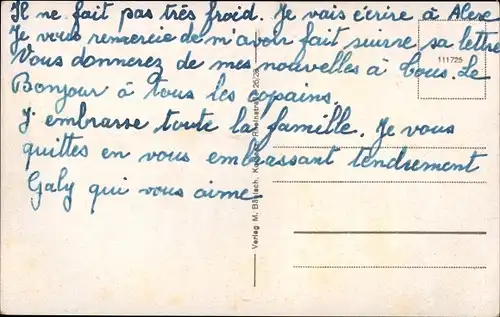 Il ne fait pas très froid. Je vais écrire à Alex
Je vous remercie de m'avoir fait suivre sa lettre
Vous donnerez de mes nouvelles à tous. Le
Bonjour à tous les copains.
J'embrasse toute la famille. Je vous
quittes en vous embrassant tendrement
Galy qui vous aime
111725
Verlag M. Bärtsch, Rheinstraße 26/28